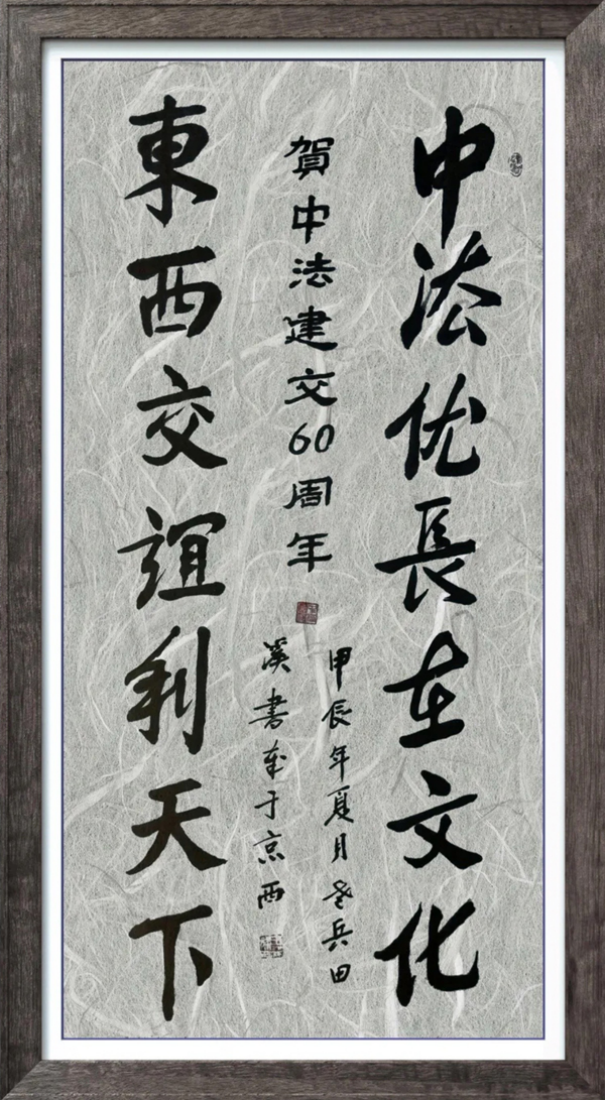 中法优長在文化
東西交誼利天下
賀中法建交60周年
甲辰年夏月老兵田
溪書于京西